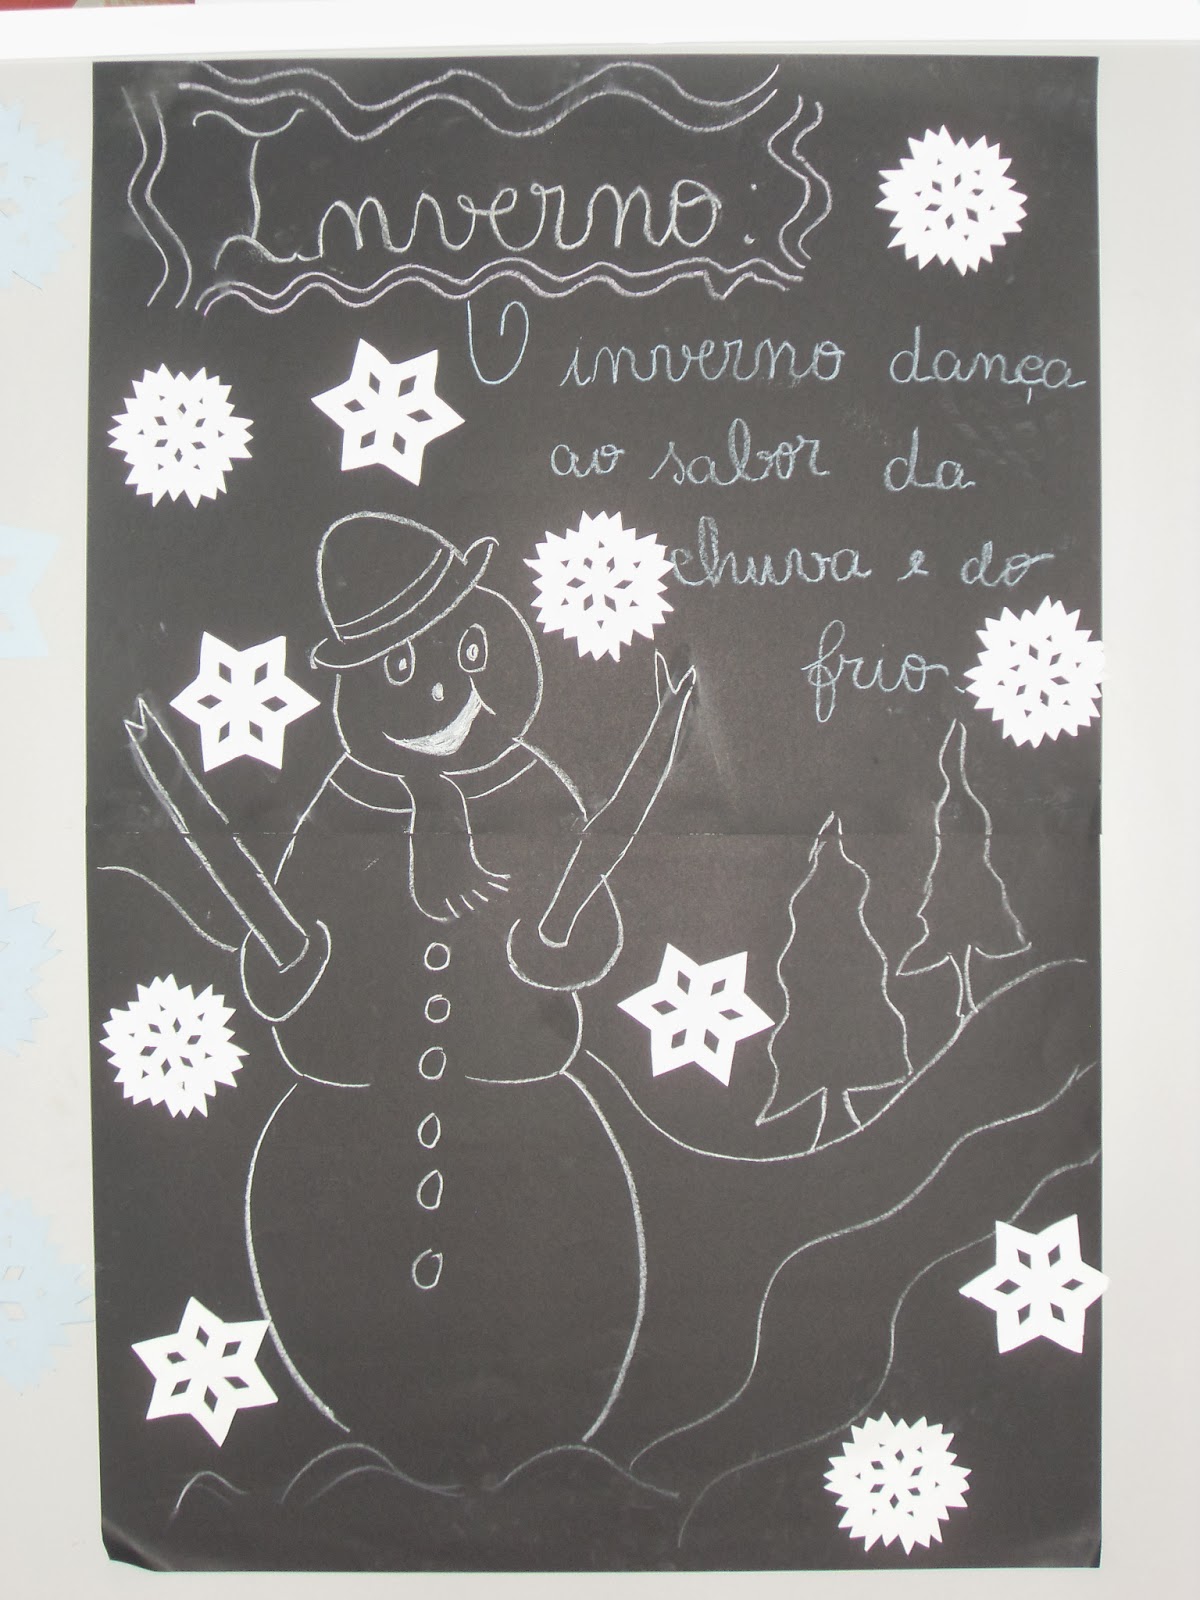 Inverno:
O inverno dança
ao sabor da
chuva e do
frio.